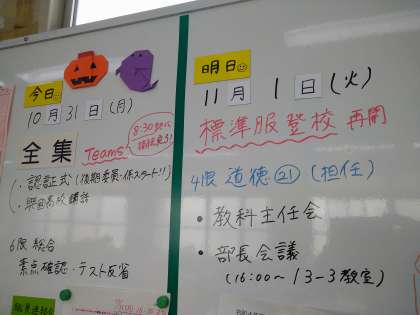 今日
10月31日(月)
全集 Teams
8:30から
・認証式(後期委員・係スタート!!)
6限 総合
素点確認・テスト反省
明日
11月1日(火)
標準服登校 再開
4限 道徳㉑ (担任)
・教科主任会
・部長会議
(16:00〜 1３-3教室)